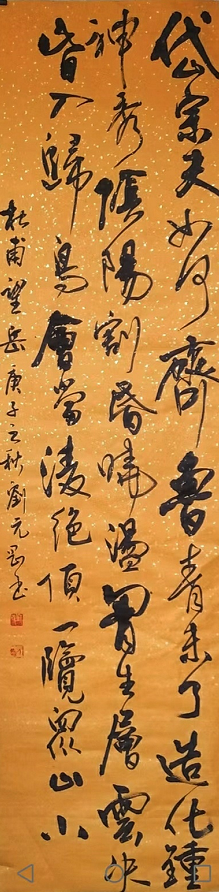 岱宗夫如何齊魯青未了造化鍾
神秀陰陽割昏曉盪胷生層雲決
眥入歸鳥會當淩絕頂一覽眾山小
杜甫望岳庚子之秋劉元書